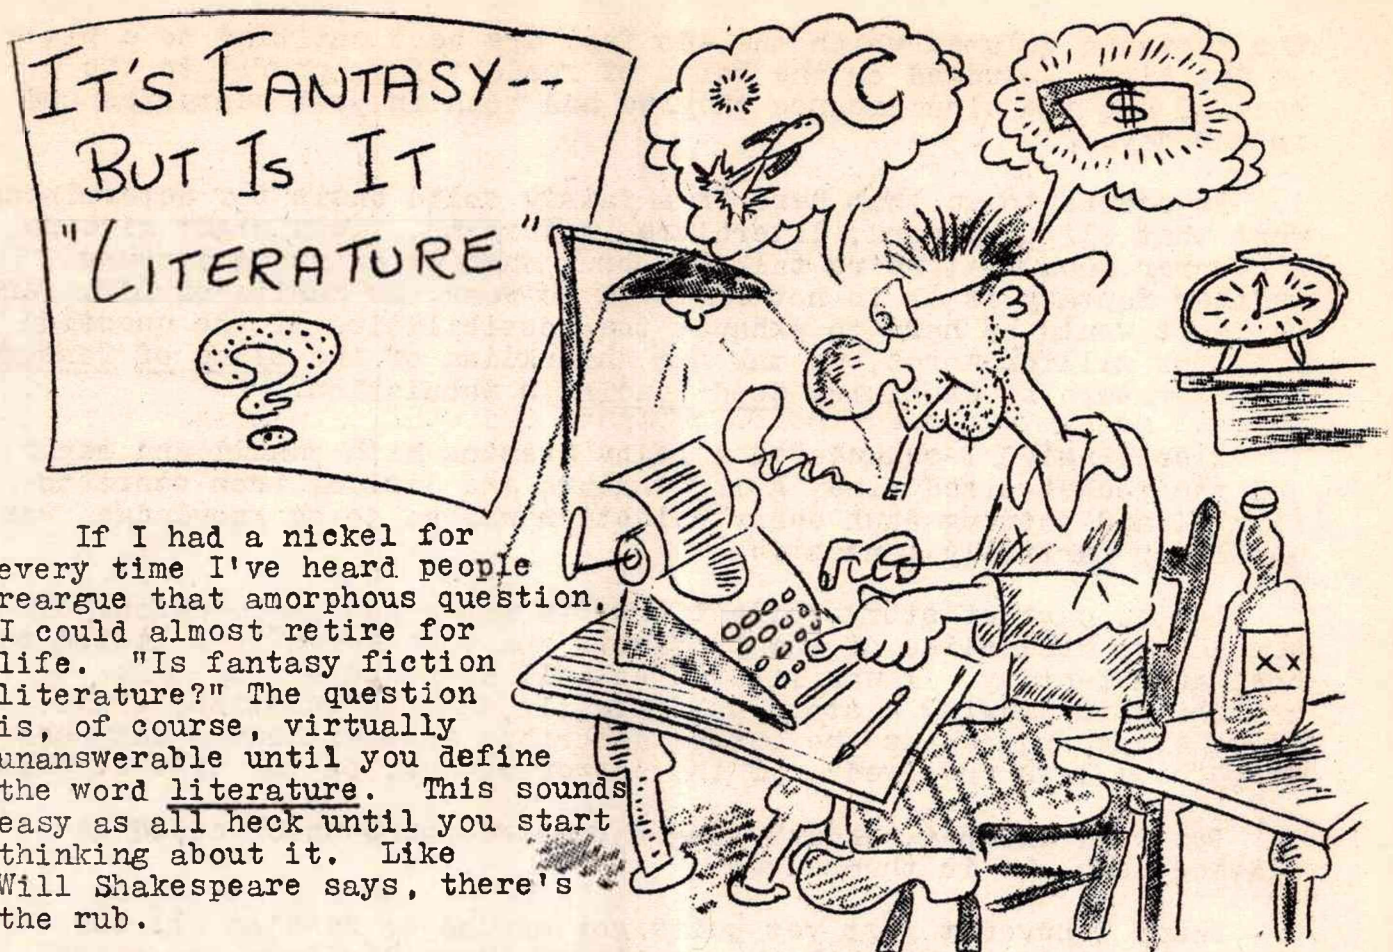 IT'S FANTASY--
BUT IS IT
"LITERATURE"
?
$
3
XX
If I had a nickel for
every time I've heard people
reargue that amorphous question,
I could almost retire for
life. "Is fantasy fiction
literature?" The question
is, of course, virtually
unanswerable until you define
the word literature. This sounds
easy as all heck until you start
thinking about it. Like
Will Shakespeare says, there's
the rub.